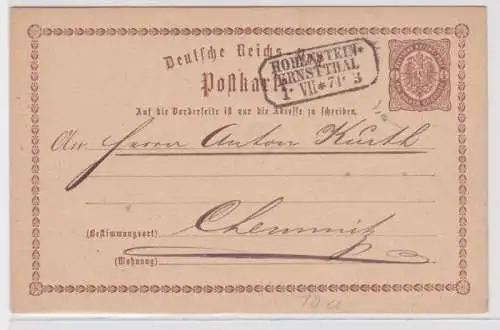 Deutsche Reichs-Post
HOHENSTEIN-
ERNSTTHAL
1 VII * 74 * 3
Postkarte
Auf die Vorderseite ist nur die Adresse zu schreiben.
An Herrn Anton Kürth
Chemnitz
(Bestimmungsort)
(Wohnung)